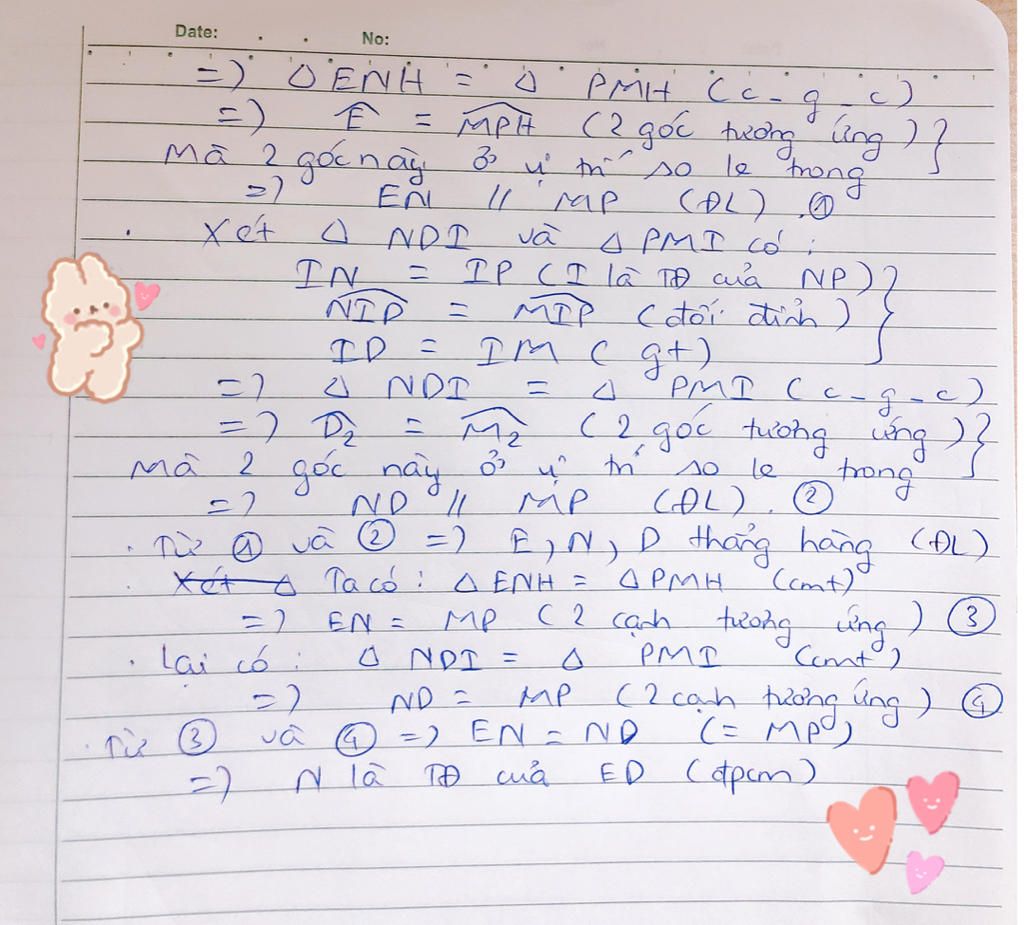 Date: . . No:
=) Δ ENH = Δ PMH (c-g-c)
=) Ê = MPH (2 góc tương ứng) }
Mà 2 góc này ở vị trí so le trong
=) EN // MP (ĐL). ①
. Xét Δ NDI và Δ PMI có:
IN = IP (I là TĐ của NP) }
NID = MIP (đối đỉnh)
ID = IM (gt)
=) Δ NDI = Δ PMI (c-g-c)
=) D₂ = M₂ (2 góc tương ứng) }
Mà 2 góc này ở vị trí so le trong
=) ND // MP (ĐL). ②
. Từ ① và ② =) E, N, D thẳng hàng (ĐL)
. Xét Δ Ta có: Δ ENH = Δ PMH (cmt)
=) EN = MP (2 cạnh tương ứng) ③
. Lại có: Δ NDI = Δ PMI (cmt)
=) ND = MP (2 cạnh tương ứng) ④
. Từ ③ và ④ =) EN = ND (= MP)
=) N là TĐ của ED (đpcm)